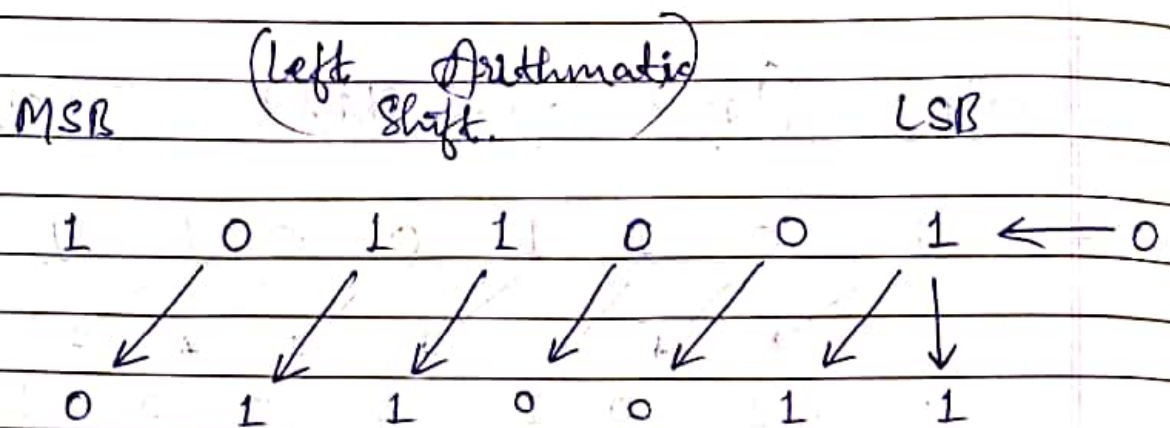 (Left Arithmatic
MSB Shift.) LSB
1 0 1 1 0 0 1 ← 0
0 1 1 0 0 1 1